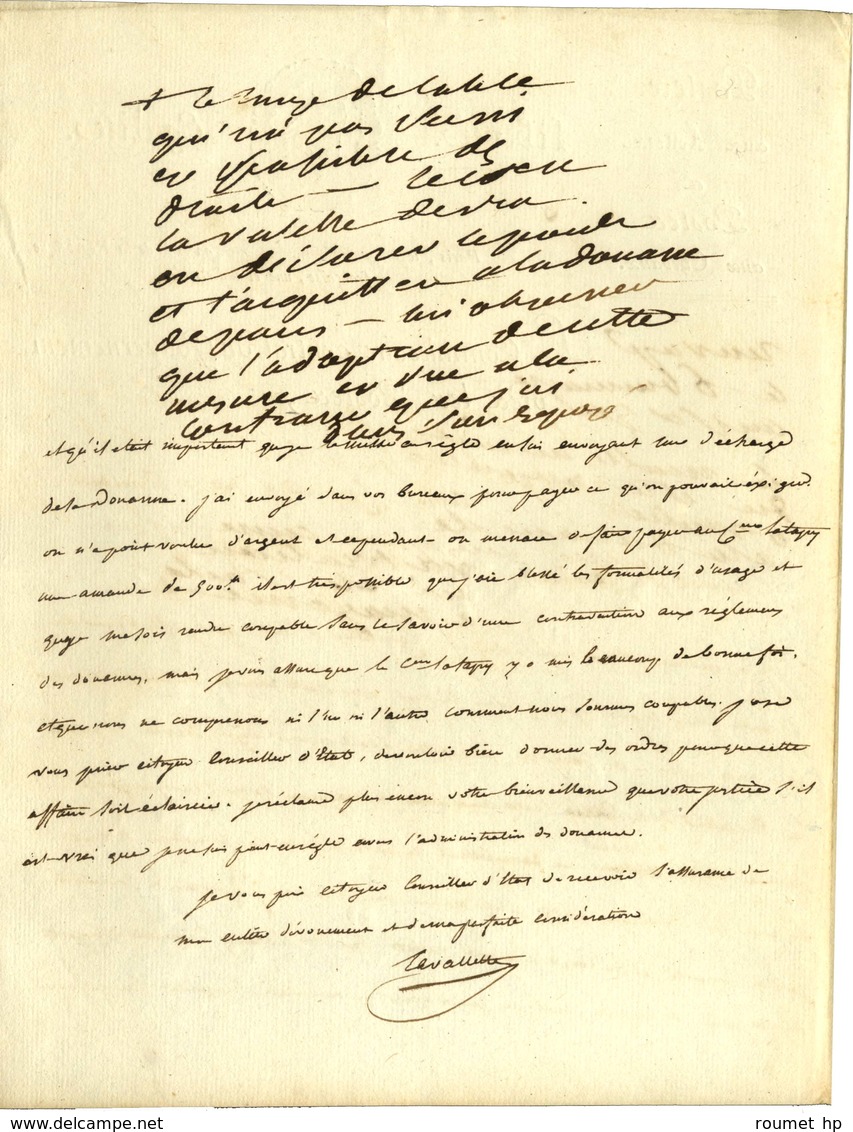 + le linge de table
qui n'a pas servi
est passible de
droits — le cen
lavalette devra
en déclarer le poids
et l'acquitter a la douane
de paris — lui observer
que l'adoption de cette
mesure est due a la
que j'ai
dans son exposé
et qu'il etait important que je me misse en règle en lui envoyant une décharge
de la Douanne. j'ai envoyé dans vos bureaux pour payer ce qu'on pouvait éxiger.
on n'a point voulu d'argent et cependant on menace de faire payer au Cen Latapy
une amande de 500. il est très possible que j'aie blessé les formalités d'usage et
que je me sois rendu coupable sans le savoir d'une contravention aux réglemens
des douannes, mais je vous assure que le Cen Latapy y a mis beaucoup de bonne foi.
et que nous ne comprenons ni l'un ni l'autre comment nous sommes coupables. j'ose
vous prier citoyen Conseiller d'Etat, de vouloir bien donner des ordres pour que cette
affaire soit éclaircie. je réclame plus encore votre bienveillance que votre justice s'il
est vrai que je ne suis point en règle envers l'administration des douannes.
je vous prie citoyen Conseiller d'Etat de recevoir l'assurance de
mon entier dévouement et de ma parfaite considération
Lavallette
roumet hp